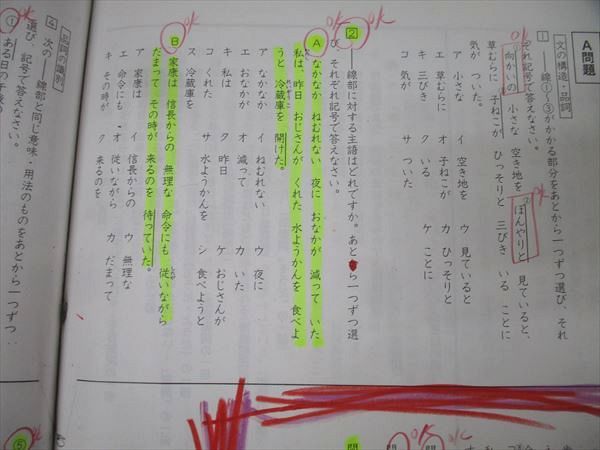 A問題
文の構造・品詞
1 ――線①～③がかかる部分をあとから一つずつ選び、それ
ぞれ記号で答えなさい。
向かいの 小さな 空き地を ぼんやりと 見ていると、
草むらに 子ねこが ひっそりと 三びき いる ことに
気が ついた。
ア 小さな イ 空き地を ウ 見ていると
エ 草むらに オ 子ねこが カ ひっそりと
キ 三びき ク いる ケ ことに
コ 気が サ ついた
2 ――線部に対する主語はどれですか。あとから一つずつ選
び、それぞれ記号で答えなさい。
A なかなか ねむれない 夜に おなかが 減って いた
私は、昨日 おじさんが くれた 水ようかんを 食べよ
うと 冷蔵庫を 開けた。
ア なかなか イ ねむれない ウ 夜に
エ おなかが オ 減って カ いた
キ 私は ク 昨日 ケ おじさんが
コ くれた サ 水ようかんを シ 食べようと
ス 冷蔵庫を
B 家康は 信長からの 無理な 命令にも 従いながら
だまって その時が 来るのを 待っていた。
ア 家康は イ 信長からの ウ 無理な
エ 命令にも オ 従いながら カ だまって
キ その時が ク 来るのを
品詞の識別
4 次の――線部と同じ意味・用法のものをあとから一つずつ
選び、記号で答えなさい。
① ある日の
⑤
OK
OK
OK
OK
OK
OK